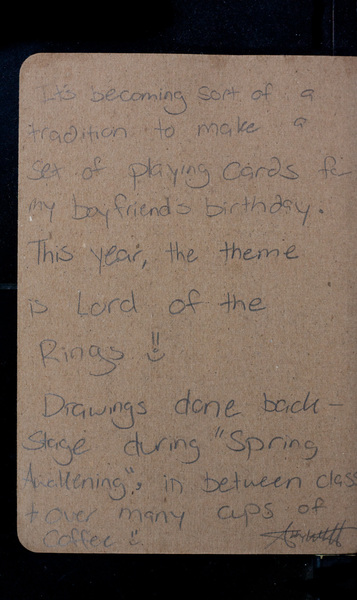 It's becoming sort of a
tradition to make a
set of playing cards for
my boyfriend's birthday.
This year, the theme
is Lord of the
Rings
Drawings done back-
stage during "Spring
Awakening", in between class
+ over many cups of
coffee